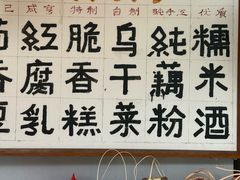 优質
糯米酒
純手工
純藕粉
自制
乌干菜
特制
脆香糕
咸亨
紅腐乳
茴香豆